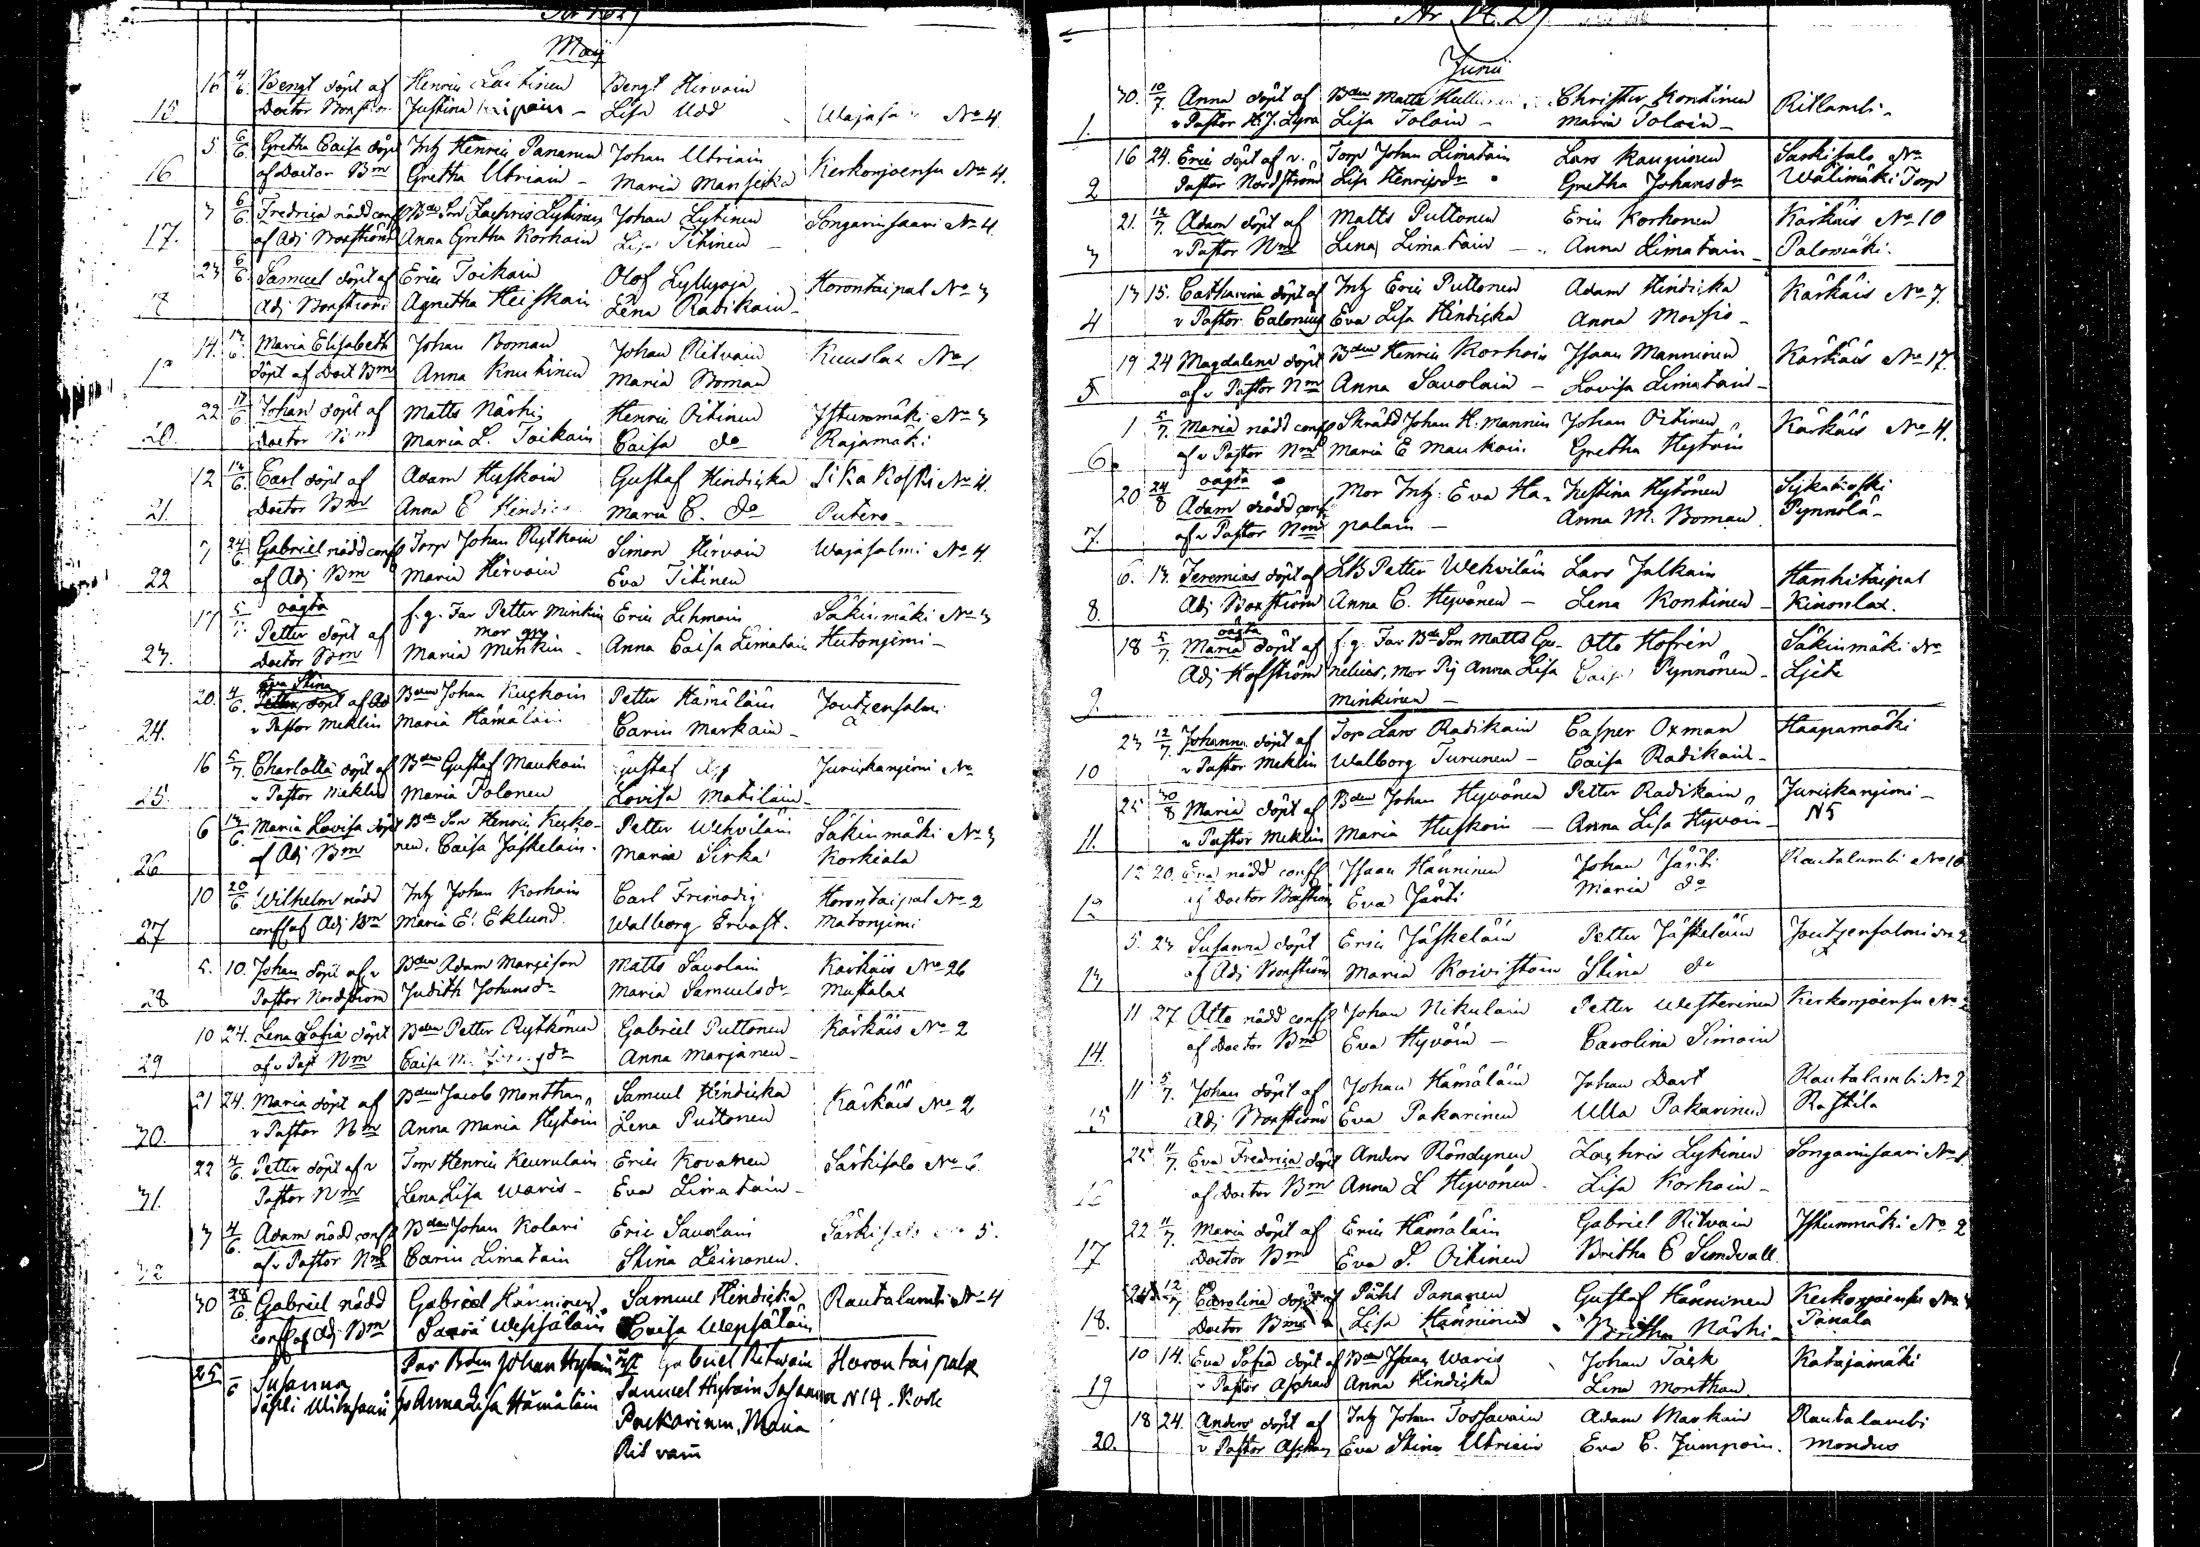 Maij
15 16 4/6 Bengt döpt af Henric Bengt Hirvoin
Doctor Justina Lisa Udd Wajasa No 4
5 6/6 Gretha Caisa döpt Inh Henric Pananen Johan Utriain Kerkonjoensu No 4.
16 af Doctor Bm Gretha Utriain Maria Mansicka
3 6/6 Fredrica nödd conf Bde Son Zachris Lytinen Johan Lytinen Songarinsaari No 4
17. af Adj Boxström Anna Gretha Korhoin Lisa Titinen
23 6/6 Samuel döpt af Eric Toikain Olof Lyllyoja Horontaipal No 3
Adj Boxström Agnetha Heiskain Lena Radikain
14. 13/6 Maria Elisabeth Johan Boman Johan Ritvain Kuuslax No 1
döpt af Doct Bm Anna Knutinen Maria Boman
22 17/6 Johan döpt af Matts Närhi Henric Oitinen Istunmäki No 3
20. Doctor Bm Maria L. Toikain Caisa do Rajamäki
12 13/6 Carl döpt af Adam Huskoin Gustaf Hindicka Sikakoski No 4.
21. Doctor Bm Anna E Maria C. do Putero
7 24/6 Gabriel nödd conf Torp Johan Rytkoin Simon Hirvoin Wajasalmi No 4
22 af Adj Bm Maria Hirvoin Eva Titinen
17 5/7 oägta f.g. Far Petter Minkin Eric Lehmoin Säkinmäki No 3
23. Petter döpt af Doctor Bm mor Maria Minkin Anna Caisa Limatain Hutonjemi
20. 4/6 Eva Stina döpt af Bden Johan Kuskoin Petter Hämäläin Joutzensalmi
24. v Pastor Meklin Maria Hämäläin Carin Markain
16 5/7 Charlotta döpt af Bden Gustaf Maukoin Gustaf Juriskanjemi No
25. v Pastor Meklin Maria Polonen Lovisa Matilain
6 13/6 Maria Lovisa döpt Bde Son Henric Kusko- Petter Wehviläin Säkinmäki No 3
26 af Adj Bm nen, Caisa Jäskeläin Maria Sirka Korkiala
10 20/6 Wilhelm nödd Inh Johan Korhoin Carl Frimodig Horontaipal No 2
27 conf af Adj Bm Maria E. Eklund. Walborg Ervast. Matonjemi
5. 10. Johan döpt af v Bden Adam Marcison Matts Savolain Kärkäis No 26
28 Pastor Nordström Judith Johansdr Maria Samuelsdr Mustalax
10 24. Lena Sofia döpt Bden Petter Rytkönen Gabriel Puttonen Kärkäis No 2
29 af v Past Nm Caisa M. Anna Marjanen
21 24. Maria döpt af Bden Jacob Monthan Samuel Hindicka Kärkäis No 2
30. v Pastor Nm Anna Maria Hytöin Lena Puttonen
22 4/6 Petter döpt af v Torp Henric Keurulain Eric Kovanen Särkisalo No 6
31. Pastor Nm Lena Lisa Waris Eva Limatain
3 4/6 Adam nödd conf Bden Johan Kolari Eric Savolain Särkisalo No 5.
32 af v Pastor Nm Carin Limatain Stina Leinonen.
30 28/6 Gabriel nödd Gabriel Hänninen Samuel Hindicka Rautalambi No 4
conf af Adj Bm Wepsäläin Caisa Wepsäläin
25 /6 Susanna Far Bden Johan Hytöin Gabriel Ritwain Horontaipale
Anna Lisa Hämäläin Samuel Hytoin Susanna N 14.
Packarinen, Maria
Ritvain
Junii
30. 10/7. Anna döpt af Bden Matts Christer Kontinen Ritlambi
1. v Pastor H.J. Lyra Lisa Tolain Maria Tolain
16 24. Eric döpt af v. Torp Johan Limatain Lars Kauppinen Särkisalo No
2 Pastor Nordström Lisa Henricsdr Gretha Johansdr Wälimäki Torp
21. 12/7. Adam döpt af Matts Puttonen Eric Korhonen Kärkäis No 10
3 v Pastor Nm Lena Limatain Anna Limatain Palomäki.
13 15. Catharina döpt af Inh Eric Puttonen Adam Hindicka Kärkäis No 7.
4 v Pastor Calonius Eva Lisa Hindicka Anna Morsio
19 24 Magdalena döpt Bden Henric Korhoin Isaac Manninen Kärkäis No 17.
5 af v Pastor Nm Anna Savolain Lovisa Limatain
1 5/7. Maria nödd conf Skrädd Johan H. Mannin Johan Oitinen Kärkäis No 4.
6. af v Pastor Nm Maria E Maukoin Gretha Hytöin
20 24/8 oägta Adam nödd conf Mor Inh. Eva Ha- Justina Hytönen
7. af v Pastor Nm palain Anna M. Boman Pynnölä
6. 13. Jeremias döpt af Petter Wehviläin Lars Jalkain Hanhitaipal
8. Adj Boxström Anna C. Hyvönen Lena Kontinen Kinonlax.
18 5/7. oägta Maria döpt af f.g. Far Bde Son Matts Gu- Otto Hofrén Säkinmäki No
Adj Hofström nelius, Mor Pig Anna Lisa Caisa Pynnönen Liete
9. Minkinen
23 12/7. Johanna döpt af Torp Lars Radikain Casper Oxman Haapamäki
10 v Pastor Meklin Walborg Turunen Caisa Radikain
25 30/8 Maria döpt af Bden Johan Hyvönen Petter Radikain Juriskanjemi
11. v Pastor Meklin Maria Huskoin Anna Lisa Hyvöin N 5
12 20. Eva nödd conf Isaac Hänninen Johan Jänti Rautalambi No 10
12 af Doctor Boxström Eva Jänti Maria do
5. 23 Susanna döpt Eric Jäskeläin Petter Jäskeläin Joutzensalmi No 2
13 af Adj Boxström Maria Koivistoin Stina do
11 27 Otto nödd conf Johan Nikulain Petter Westerinen Kerkonjoensu No 2
14. af Doctor Bm Eva Hyvöin Carolina Simoin
11 5/7. Johan döpt af Johan Hämäläin Johan Dart Rautalambi No 2
15 Adj Boxström Eva Pakarinen Ulla Pakarinen Rastila
25 11/7. Eva Fredrica döpt Anders Röndynen Zachris Lytinen Songarinsaari No 1.
16 af Doctor Bm Anna L Hyvönen Lisa Korhoin
22 11/7. Maria döpt af Eric Hämäläin Gabriel Ritvain Istunmäki No 2
17 Doctor Bm Eva S. Oitinen Britha C Sundvall
12/7 Carolina döpt af Påhl Pananen Gustaf Hänninen Kerkonjoensu No 4
18. Doctor Bm Lisa Hänninen Britha Närhi Panala
10 14. Eva Sofia döpt af Bden Isaac Waris Johan Täck Katajamäki
19 v Pastor Aschan Anna Hindicka Lena Monthan
18 24. Anders döpt af Inh Johan Tossavain Adam Markain Rautalambi
20. v Pastor Aschan Eva Stina Utriain Eva C. Jumpoin. Mondus